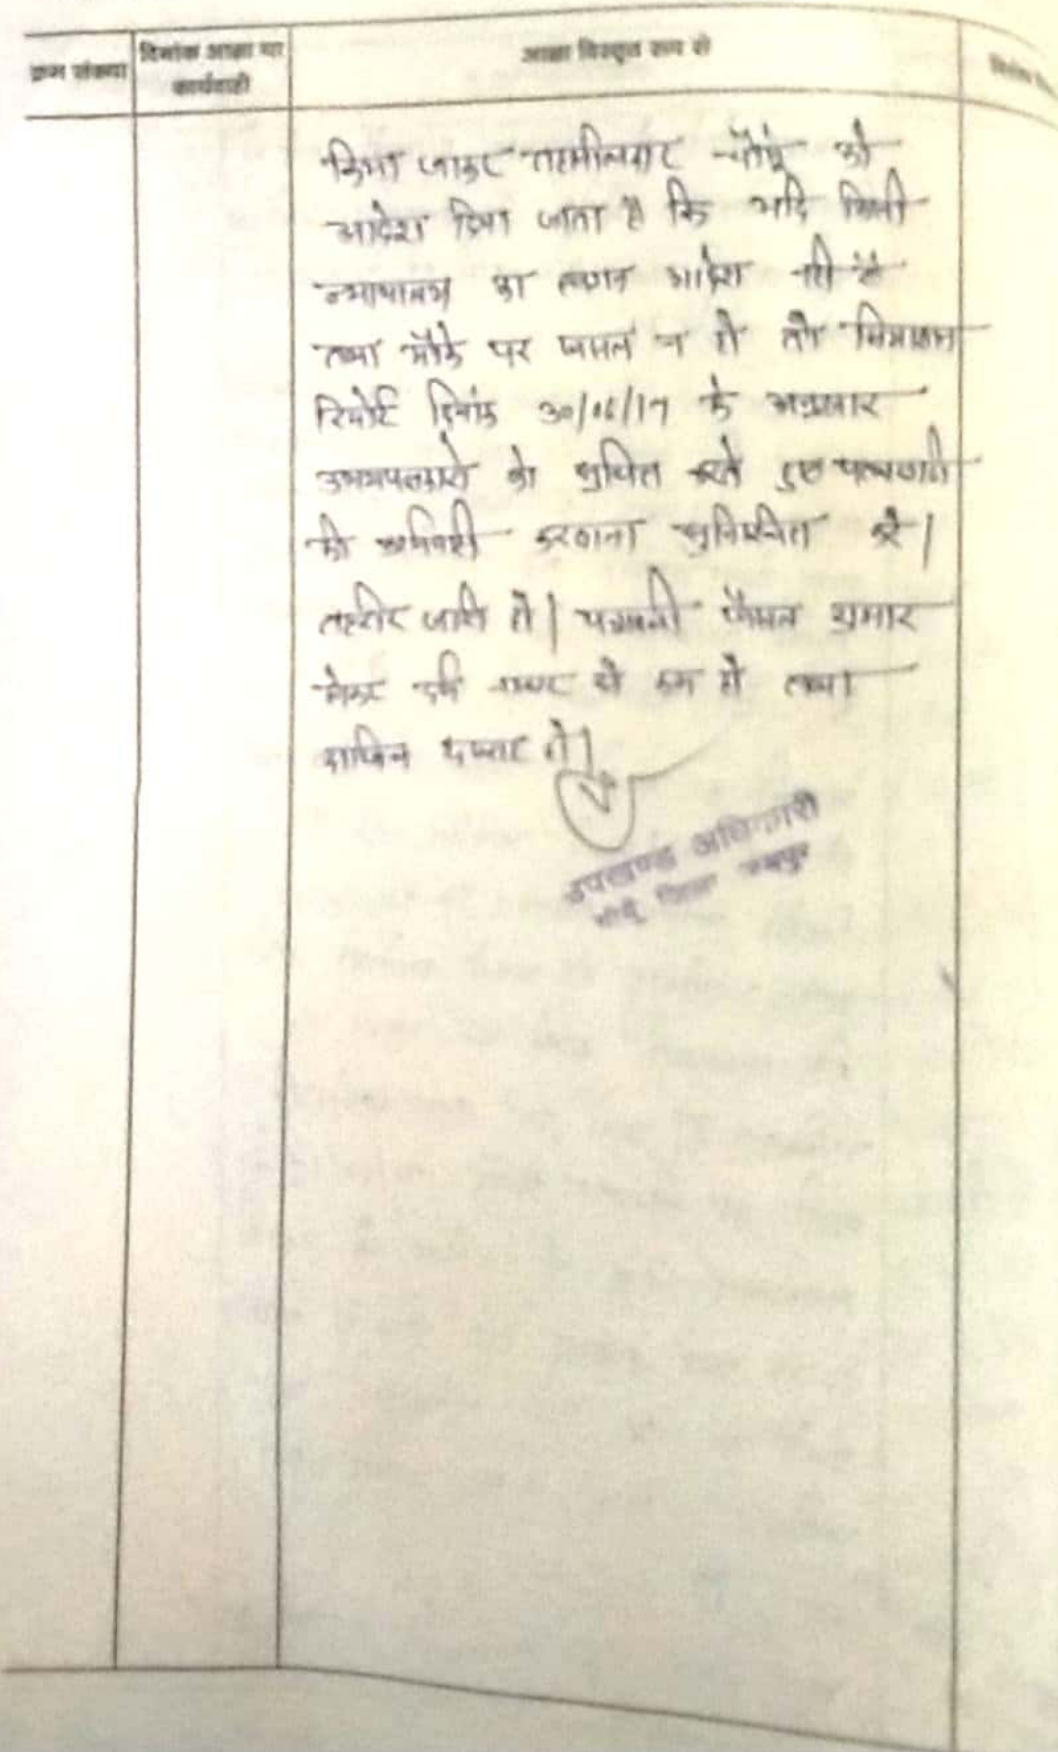 क्रम संख्या
दिनांक आज्ञा या
कार्यवाही
आज्ञा विस्तृत रूप से
किया जाकर तहसीलदार को
आदेश दिया जाता है कि यदि किसी
न्यायालय का स्थगन आदेश नहीं है
तथा मौके पर फसल न हो तो सीमाज्ञान
रिपोर्ट दिनांक 30/06/17 के अनुसार
उभयपक्षकारो को सूचित करते हुए पत्थरगढी
की कार्यवाही करवाना सुनिश्चित करे।
तहरीर जारी हो। पत्रावली फैसल शुमार
होकर दर्ज नम्बर से कम हो तथा
दाखिल दफ्तर हो।
उपखण्ड अधिकारी
जिला जयपुर